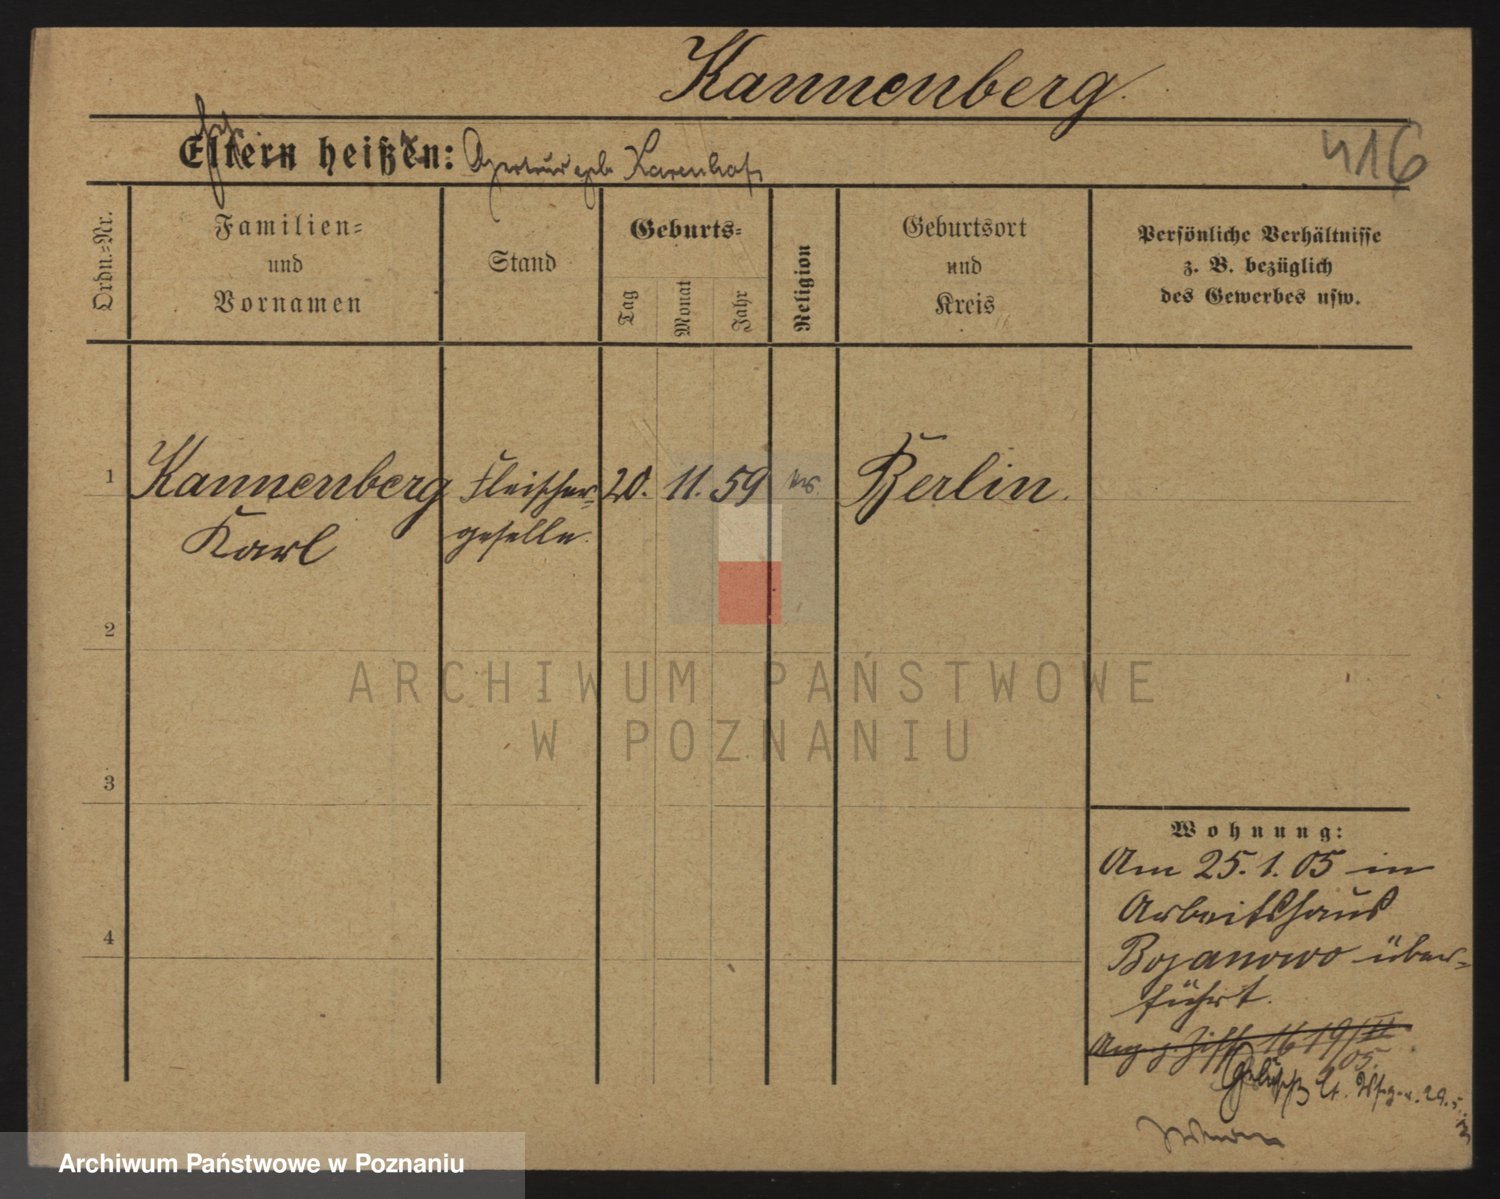 Kannenberg.
416
Eltern heißen: geb. Karenhof
Ordn.-Nr.
Familien-
und
Vornamen
Stand
Geburts-
Tag
Monat
Jahr
Religion
Geburtsort
und
Kreis
Persönliche Verhältnisse
z. B. bezüglich
des Gewerbes usw.
1
Kannenberg
Karl
Fleischer-
geselle.
20.
11.
59
Berlin.
2
3
4
Wohnung:
Am 25.1.05 in
Arbeitshaus
Bojanowo über-
führt.
16 19/
05.
ARCHIWUM PAŃSTWOWE
W POZNANIU
Archiwum Państwowe w Poznaniu